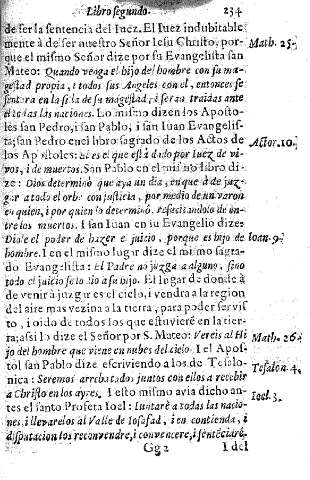 Libro segundo. 234
de ser la sentencia del Iuez. El Iuez indubitable
mente à de ser nuestro Señor Iesu Christo, por-
que el mismo Señor dize por su Evangelista san
Mateo: Quando venga el hijo del hombre con su ma-
gestad propia, i todos sus Angeles con el, entonces se
sentara en la silla de su magestad, i seran traidas ante
el todas las naciones. Lo mismo dizen los Aposto-
les san Pedro, i san Pablo, i san Iuan Evangelis-
ta; san Pedro en el libro sagrado de los Actos de
los Apostoles: El es el que està dado por Iuez de vi-
vos, i de muertos. San Pablo en el mismo libro di-
ze: Dios determinò que aya un dia, en que à de juz-
gar a todo el orbe con justicia, por medio de un varon
en quien, i por quien lo determinò, resucitandolo de en-
tre los muertos. I san Iuan en su Evangelio dize:
Diole el poder de hazer el juicio, porque es hijo de
hombre. I en el mismo lugar dize el mismo sagra-
do Evangelista: el Padre no juzga a alguno, sino
todo el juicio se lo dio a su hijo. El lugar de donde à
de venir à juzgar es el cielo, i vendra a la region
del aire mas vezina a la tierra, para poder ser vis
to, i oido de todos los que estuvierē en la tier-
ra; assi lo dize el Señor por S. Mateo: Vereis al Hi
jo del hombre que viene en nubes del cielo. I el Apos-
tol san Pablo dize escriviendo a los de Tesalo-
nica: Seremos arrebatados juntos con ellos a recebir
a Christo en los ayres. I esto mismo avia dicho an-
tes el santo Profeta Ioel: Iuntarè a todas las nacio
nes, i llevarelos al Valle de Iosafad, i en contienda, i
disputacion los reconvendre, i convencere, i sentēciarè.
Gg 2 I del
Math. 25.
Actor. 10.
Ioan. 9.
Math. 26.
Tesalon. 4.
Ioel. 3.